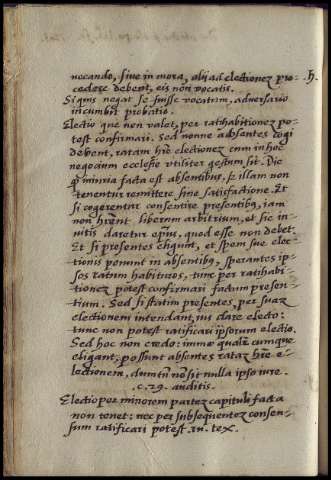 uocando, siue in mora, alij ad electionez pro= h.
cedere debent, eis non vocatis.
Si quis negat se fuisse vocatum, aduersario
incumbit probatio.
Electio que non valet, per ratihabitionez po=
test confirmari. Sed nonne absentes cogi
debent, ratam hr̃e electionez cum in hoc
negocium ecclesie vtiliter gestum sit. Dic
q̃ iniuria facta est absentibus, & illam non
tenentur remittere sine satisfactione. Et
si cogerentur consentire presentibq̃, iam
non hr̃ent liberum arbitrium, et sic in=
uitis daretur ep̃us, quod esse non debet.
Et si presentes eligunt, et spem sue elec=
tionis ponunt in absentibq̃, sperantes ip=
sos ratum habituros, tunc per ratihabi=
tionez potest confirmari factum presen=
tium. Sed si statim presentes, per suaz
electionem intendant, ius dare electo:
tunc non potest ratificari ipsorum electio.
Sed hoc non credo: immo qualr̃cumque
eligant, possunt absentes rataz hr̃e e=
lectionem, dum̃ nõ sit nulla ipso iure.
.c.29. auditis.
Electio per minorem partez capituli facta
non tenet: nec per subsequentez consen=
sum ratificari potest. in tex.